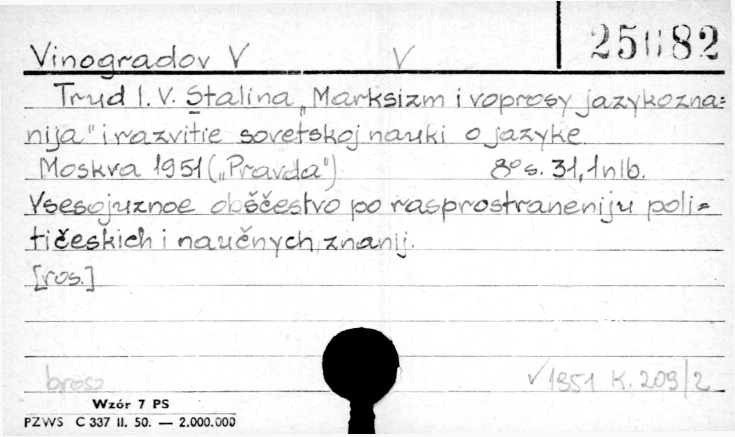 25682
Vinogradov V V
Trud I. V. Stalina „Marksizm i voprosy jazykozna=
nija" i razvitie sovetskoj nauki o jazyke
Moskva 1951 („Pravda") 8° s. 31, 1 nlb.
Vsesojuznoe obščestvo po rasprostraneniju poli=
tičeskich i naučnych znanij.
[ros.]
brosz
√ 1951 K. 209/2
Wzór 7 PS
PZWS C 337 II. 50. — 2.000.000